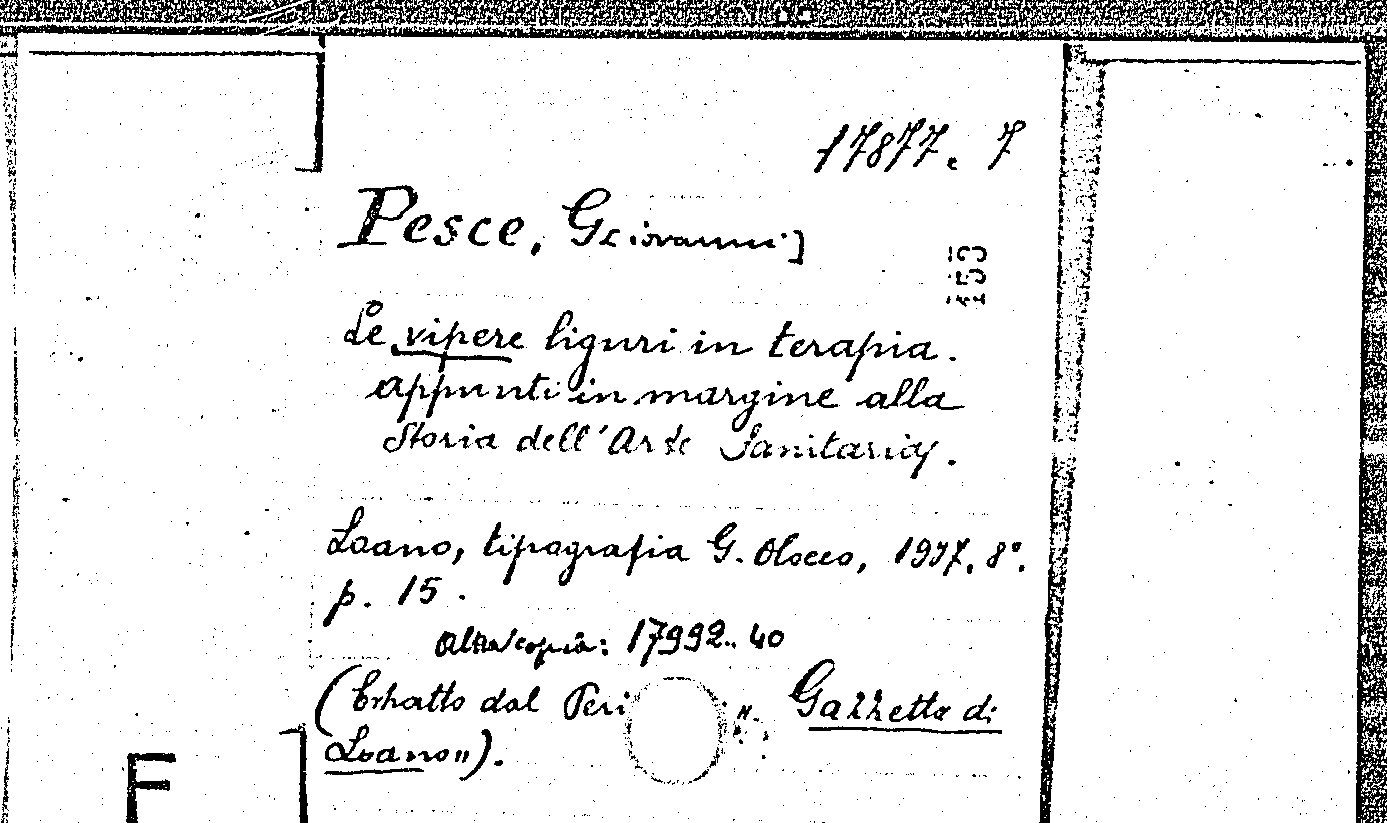 17877. 7
Pesce, G[iovanni]
153
Le vipere liguri in terapia.
appunti in margine alla
Storia dell'Arte Sanitaria.
Loano, tipografia G. Olocco, 1937. 8°.
p. 15.
Altra copia: 17992.. 40
(Estratto dal Peri ". Gazzetta di
Loano").
F